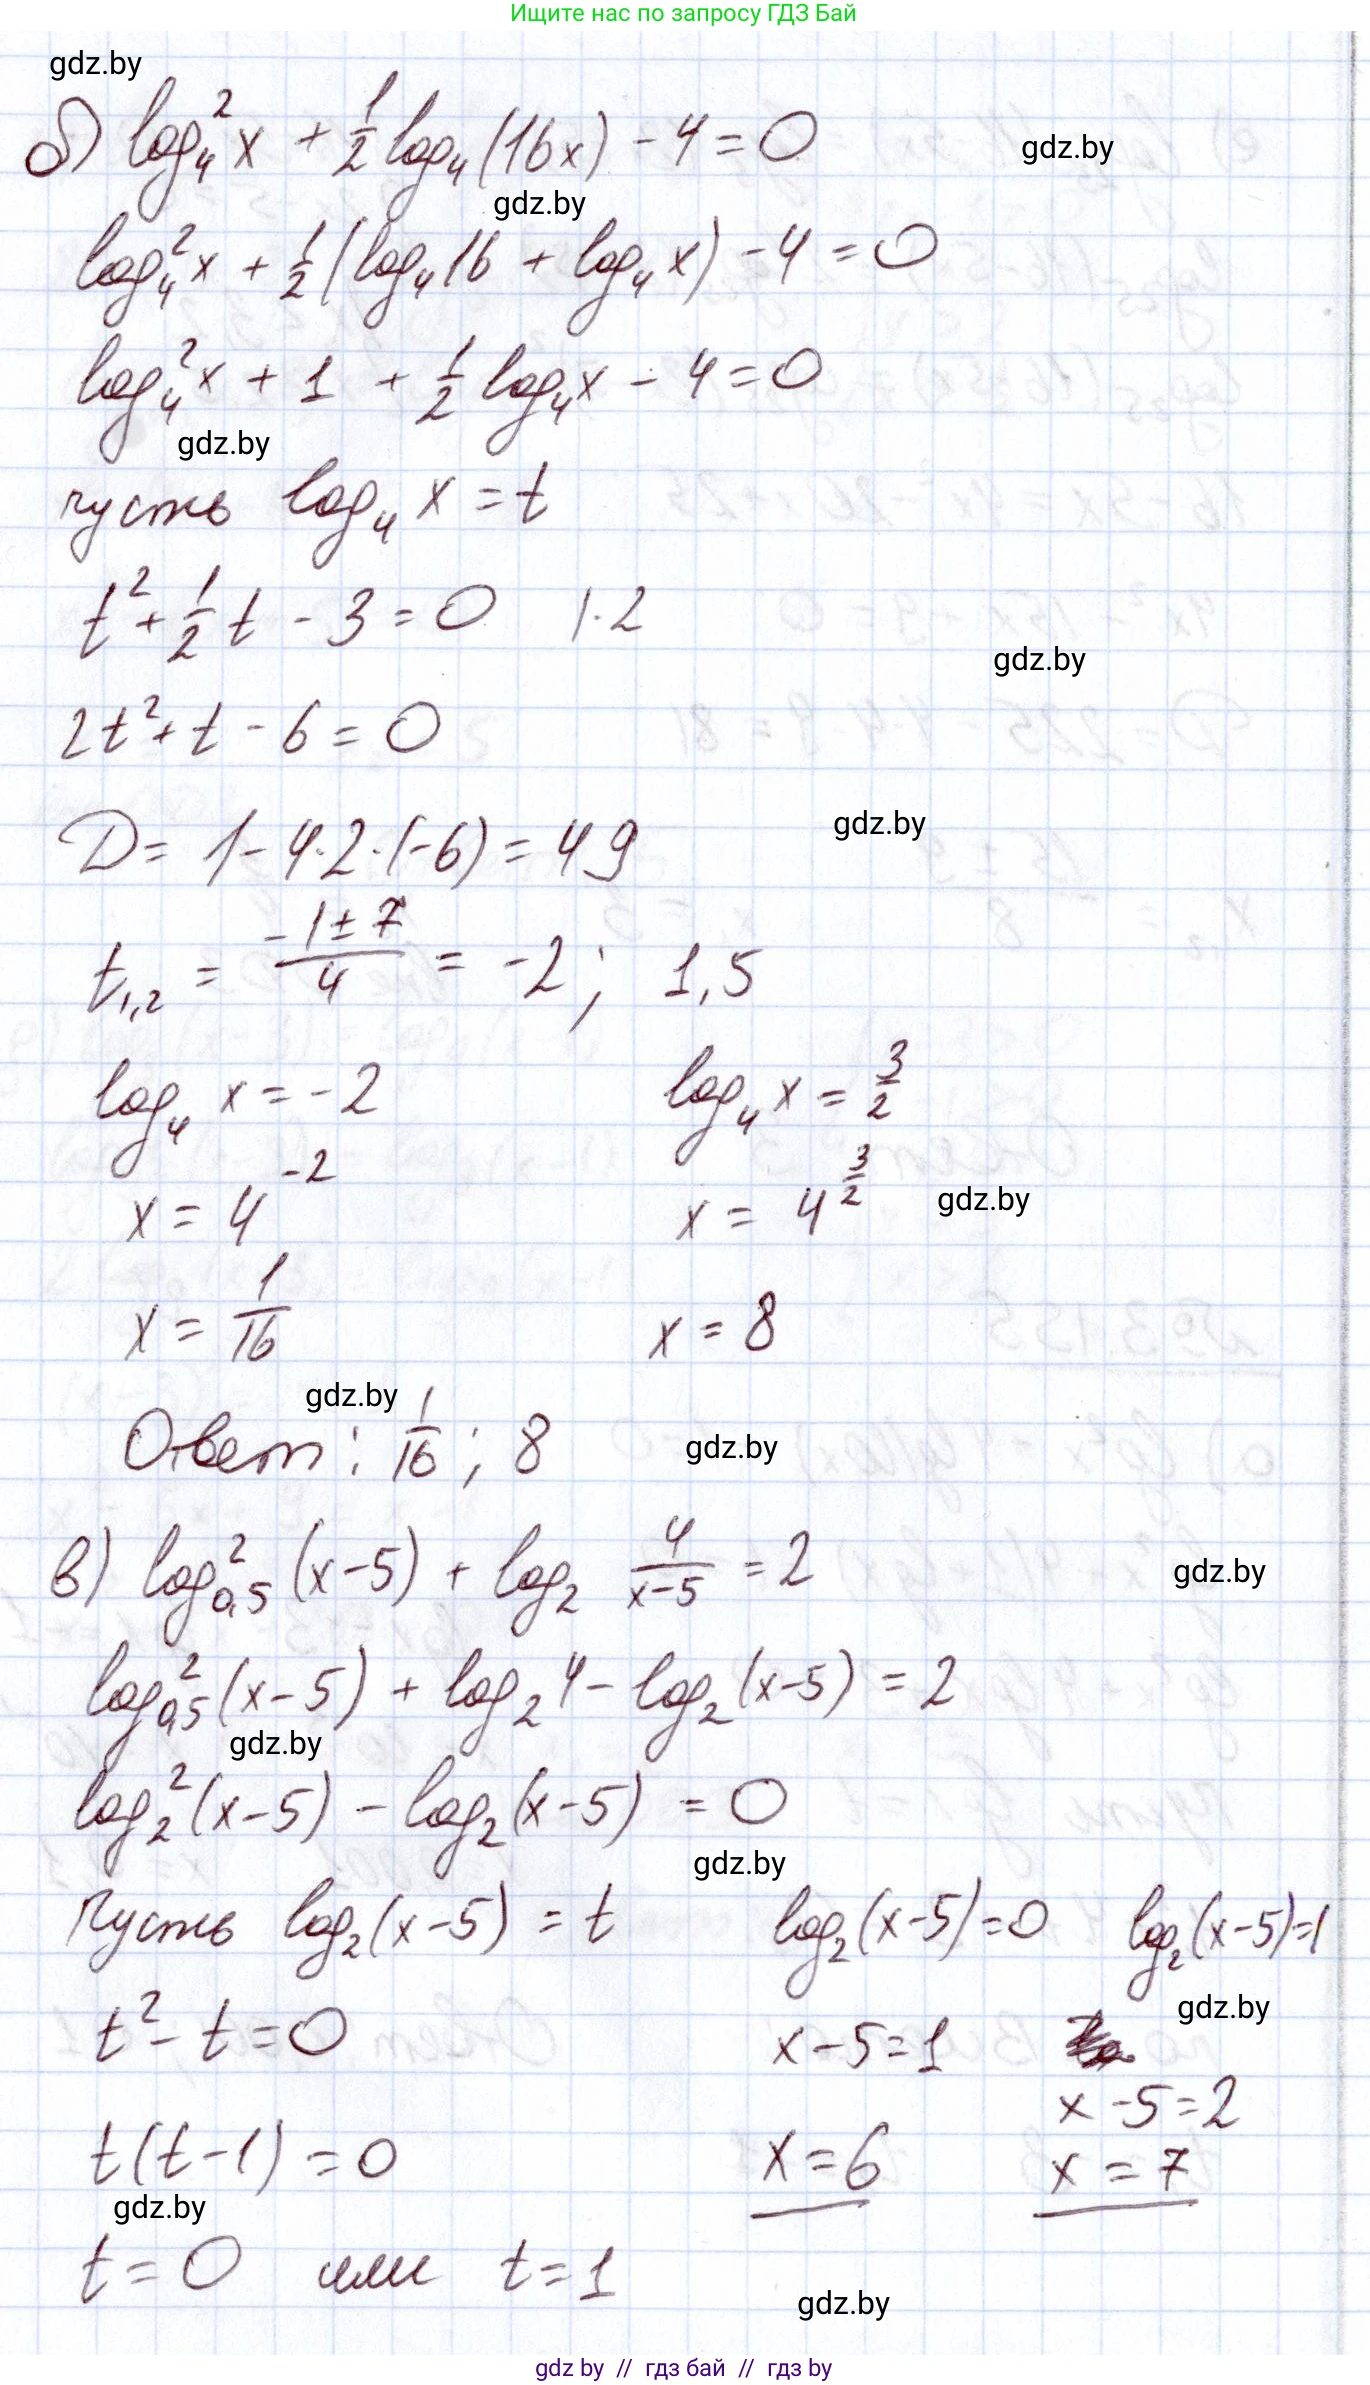 Ищите нас по запросу ГДЗ Бай
gdz.by
б) log₄² x + 1/2 log₄ (16x) - 4 = 0
gdz.by
gdz.by
log₄² x + 1/2 (log₄ 16 + log₄ x) - 4 = 0
log₄² x + 1 + 1/2 log₄ x - 4 = 0
gdz.by
пусть log₄ x = t
t² + 1/2 t - 3 = 0 | · 2
gdz.by
2t² + t - 6 = 0
gdz.by
D = 1 - 4 · 2 · (-6) = 49
t₁,₂ = (-1 ± 7)/4 = -2 ; 1,5
log₄ x = -2 log₄ x = 3/2
x = 4⁻² x = 4^(3/2)
gdz.by
x = 1/16 x = 8
gdz.by
Ответ : 1/16 ; 8
gdz.by
в) log₀,₅² (x-5) + log₂ 4/(x-5) = 2
gdz.by
log₀,₅² (x-5) + log₂ 4 - log₂ (x-5) = 2
gdz.by
log₂² (x-5) - log₂ (x-5) = 0
gdz.by
Пусть log₂ (x-5) = t log₂ (x-5) = 0 log₂ (x-5) = 1
gdz.by
t² - t = 0 x - 5 = 1
x - 5 = 2
t (t-1) = 0 x = 6 x = 7
gdz.by
t = 0 или t = 1
gdz.by
gdz by // гдз бай // гдз by